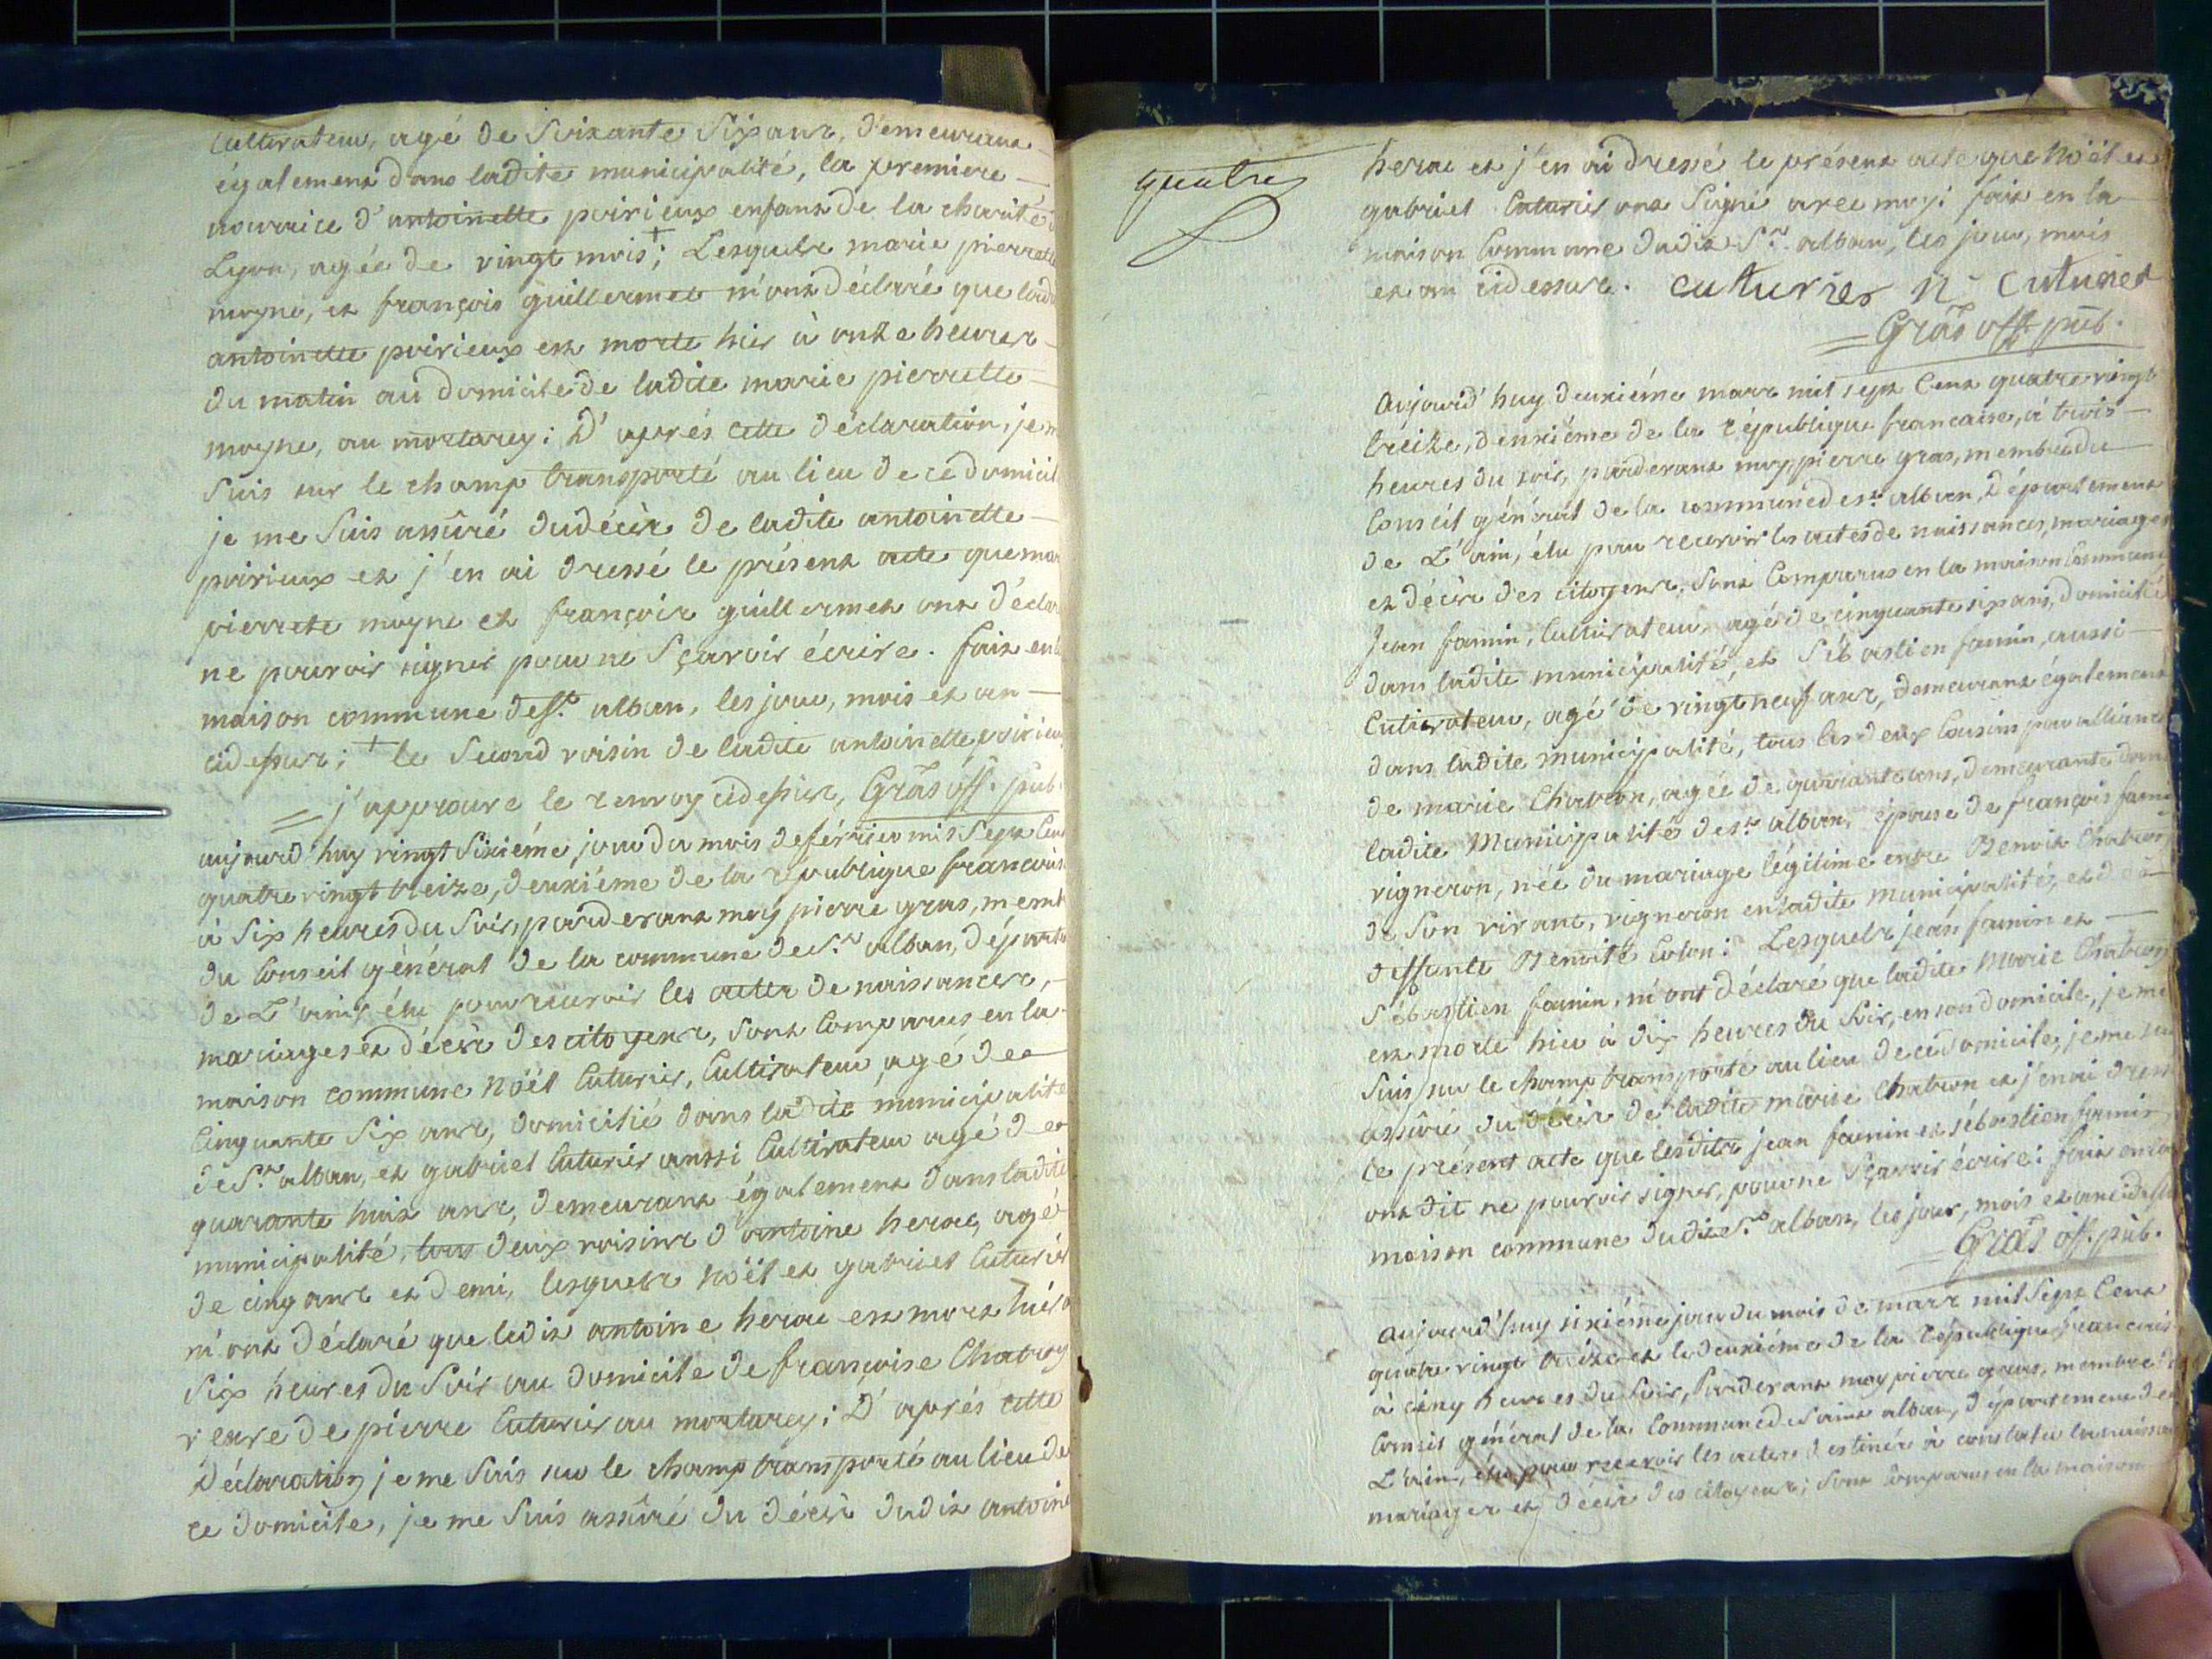 Cultivateur, agé de Soixante Six ans, demeurant
également dans ladite municipalité, la premiere
nourrice d'antoinette poirieux enfant de la charité d
Lyon, agée de vingt mois +; Lesquels marie pierrette
moyne, et françois guillermet m'ont déclaré que ladi
antoinette poirieux est morte hier à onze heures
du matin au domicile de ladite marie pierrette
moyne, au mortarey: D'aprés cette déclaration, je m
suis sur le champ transporté au lieu de ce domicil
je me suis assûré dudécès de ladite antoinette
poirieux et j'en ai dressé le présent acte que mar
pierrete moyne et françois guillermet ont déclar
ne pouvoir signer pour ne sçavoir écrire. fait en la
maison commune de st. alban, les jour, mois et an
cidessus; + le second voisin de ladite antoinette poirieux
= j'approuve le renvoy cidessus, Gras off. pub.
aujourd'huy vingt sixiéme jour du mois de février mil Sept Cent
quatre vingt treize, deuxiéme de la république francaise
à six heures du soir, pardevant moy pierre gras, memb
du Conseil général de la commune de St. alban, départe
de L'ain, élu pour recevoir les actes de naissances,
mariages et décès des citoyens, sont Comparus en la
maison commune nöël Cuturier, Cultivateur, agé de
Cinquante Six ans, domicilié dans ladite municipalité
de St. alban, et gabriel Cuturier aussi Cultivateur agé de
quarante huit ans, demeurant également dans ladite
municipalité, tous deux voisins d'antoine herac, agé
de cinq ans et demi, lesquels nöël et gabriel Cuturier
m'ont déclaré que ledit antoine herac est mort hier à
Six heures du Soir au domicile de françoise Chatron
veuve de pierre Cuturier au mortarey; D'aprés cette
déclaration je me suis sur le champ transporté au lieu de
ce domicile, je me suis assûré du décès dudit antoine
quatre
herac et j'en ai dressé le présent acte que nöël et
gabriel Cuturier ont signé avec moy: fait en la
maison Commune dudit St. alban, les jour, mois
et an cidessus. cuturier n. Cuturier
= Gras off. pub.
Aujourd'huy deuxiéme mars mil sept Cent quatre vingt
treize, deuxiéme de la république francaise, à trois
heures du soir, pardevant moy, pierre gras, membre du
Conseil général de la commune de st. alban, département
de L'ain, élu pour recevoir les actes de naissances, mariages
et décès des citoyens, sont Comparus en la maison Commune
Jean famin, Cultivateur, agé de cinquante six ans, domicilié
dans ladite municipalité, et Sébastien famin, aussi
Cultivateur, agé de vingt neuf ans, demeurant également
dans ladite municipalité, tous les deux Cousins par alliance
de marie Chatron, agée de quarante ans, demeurante dans
ladite Municipalité de st. alban, épouse de françois fami
vigneron, née du mariage légitime entre Benoit Chatron
de son vivant, vigneron en ladite municipalité, et de
deffunte Benoite Colon: Lesquels jean famin et
Sébastien famin, m'ont déclaré que ladite Marie Chatron
est morte hier à dix heures du soir, en son domicile, je me
suis sur le champ transporté au lieu de ce domicile, je me su
assûré du décès de ladite marie Chatron et j'en ai dressé
le présent acte que lesdits jean famin et sébastien famin
ont dit ne pouvoir signer, pour ne sçavoir écrire: fait en la
maison commune dudit St. alban, les jour, mois et an cidessus
= Gras off. pub.
Aujourd'huy sixiéme jour du mois de mars mil Sept Cent
quatre vingt treize et le deuxiéme de la république francaise
à cinq heures du soir, Pardevant moy pierre gras, membre
Conseil général de la Commune de saint alban, département de
L'ain, élu pour recevoir les actes destinés à constater la naissan
mariages et décès des citoyens; sont Comparus en la maison